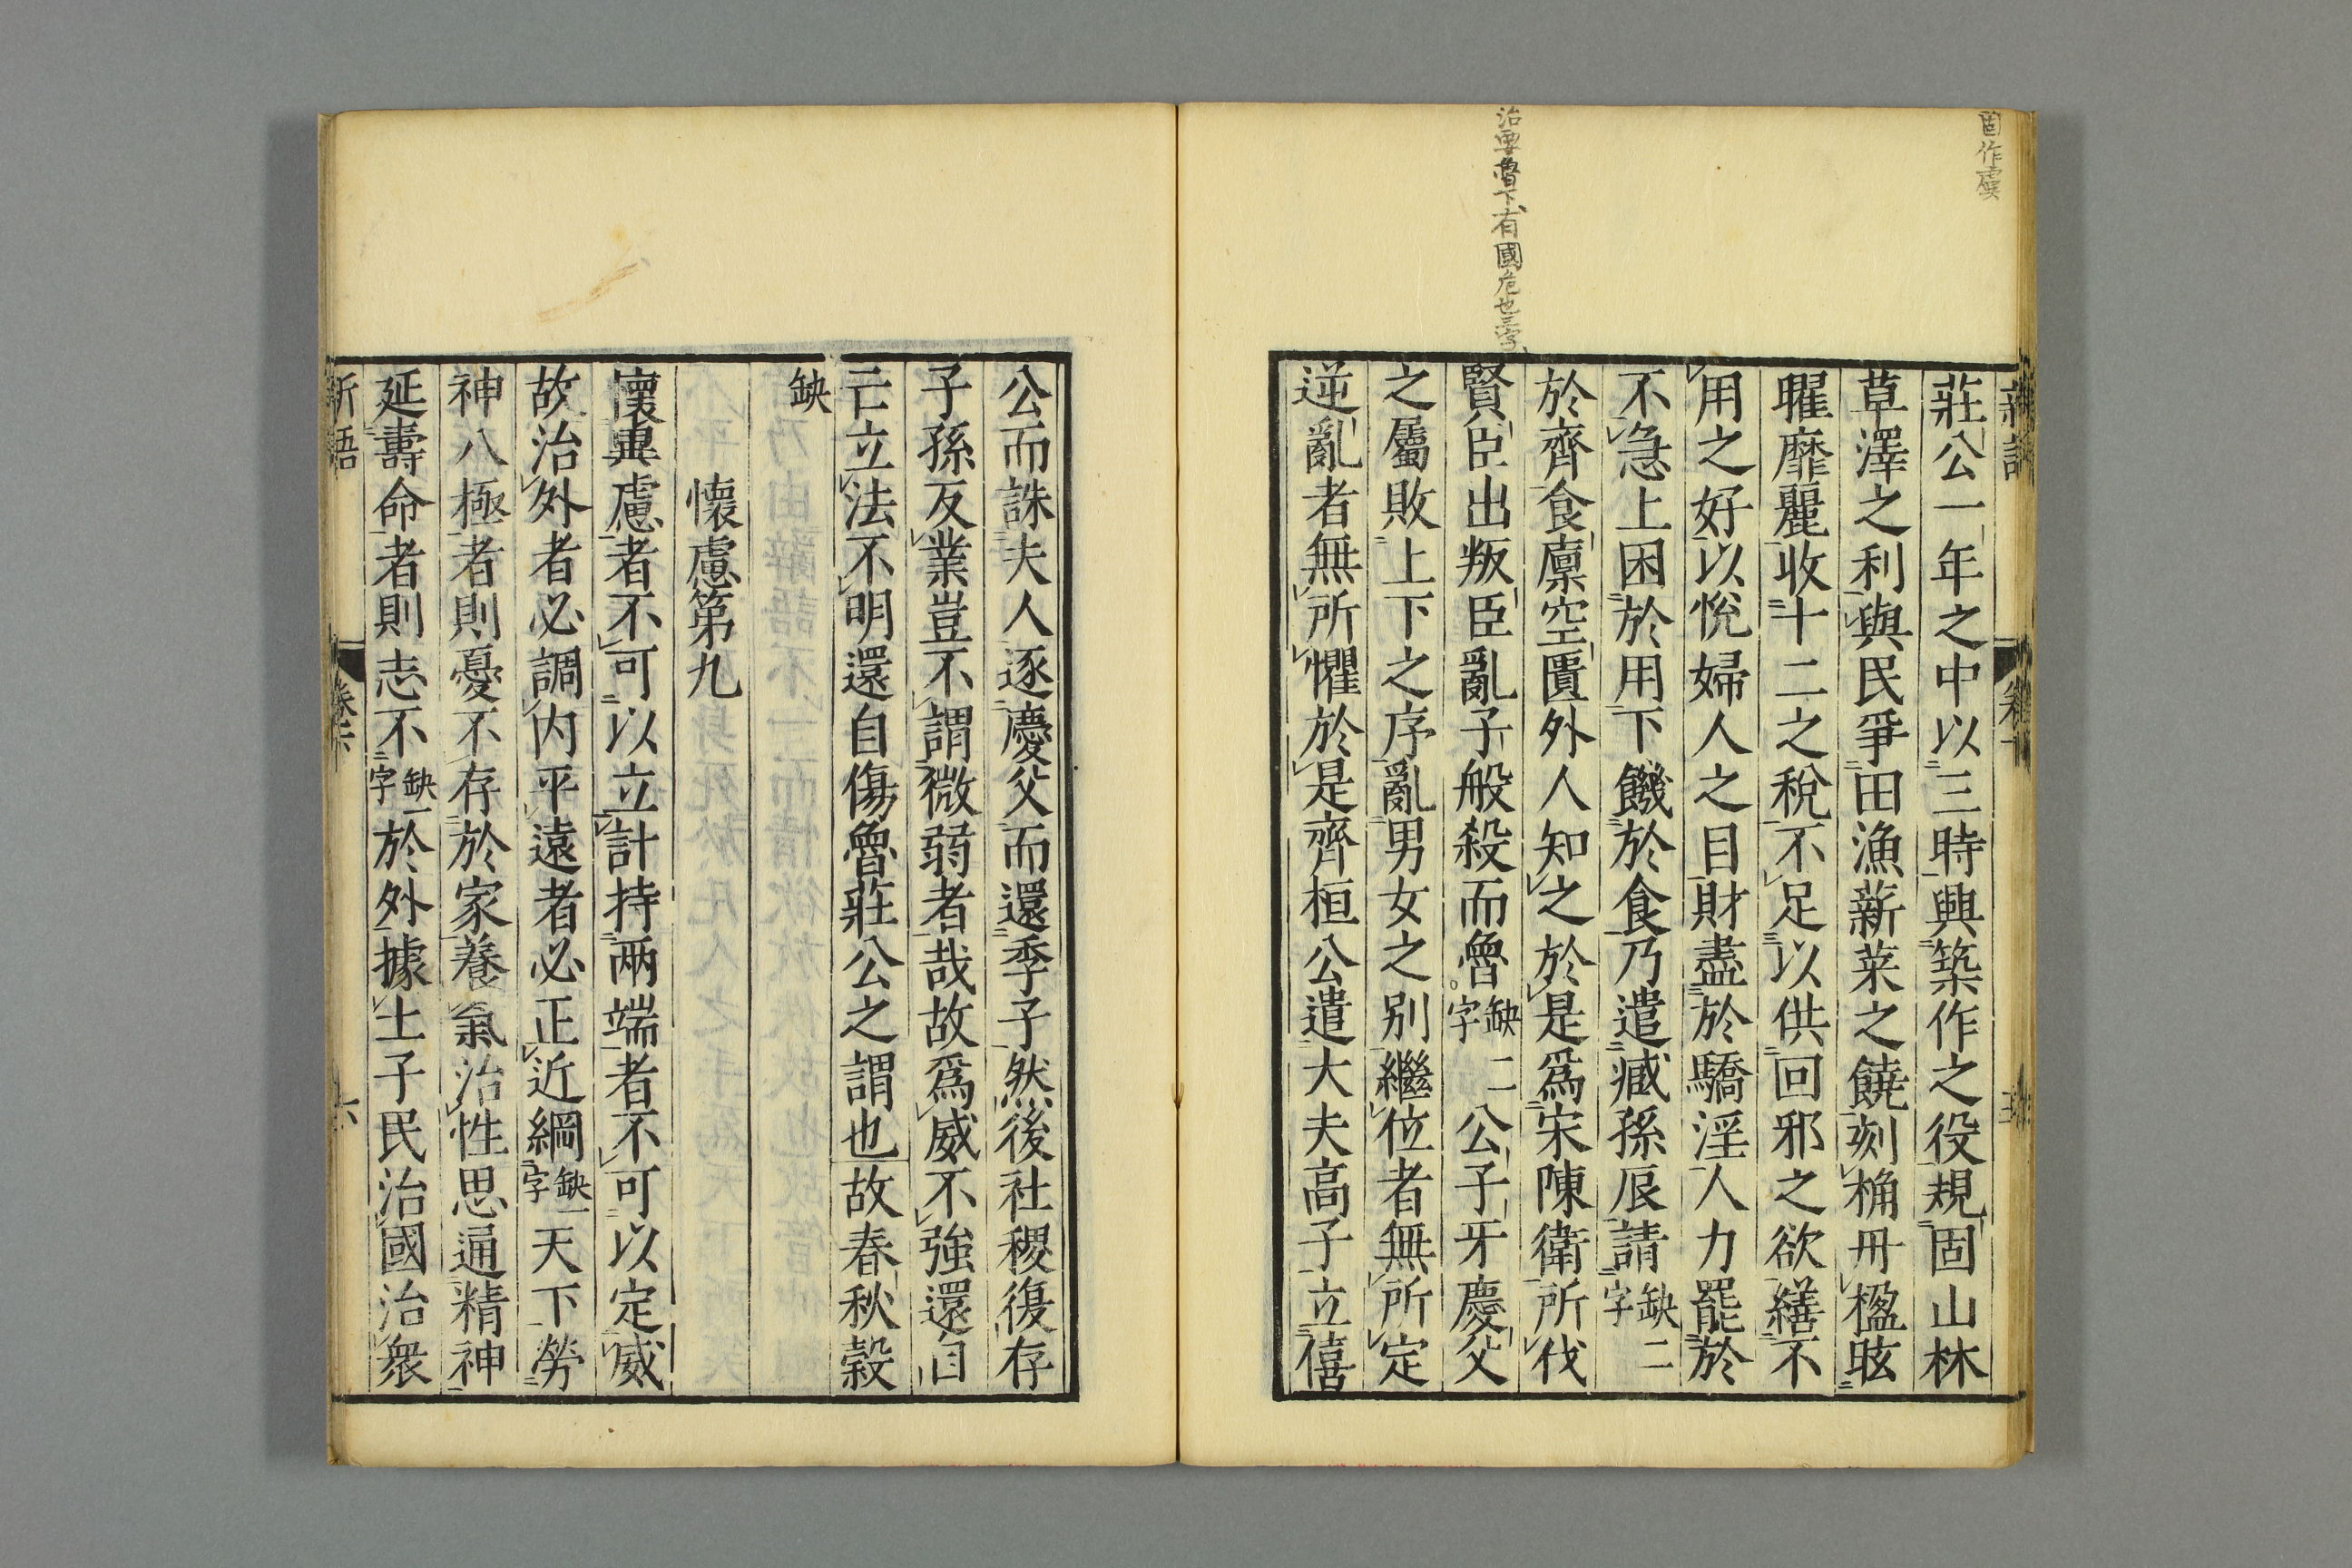 固作虞
治要魯下有國危也三字
莊公一年之中以三時興築作之役規固山林
草澤之利與民爭田漁薪菜之饒刻桷丹楹眩
曜靡麗收十二之稅不足以供回邪之欲繕不
用之好以悅婦人之目財盡於驕淫人力罷於
不急上困於用下饑於食乃遣臧孫辰請缺二字
於齊食廩空匱外人知之於是爲宋陳衛所伐
賢臣出叛臣亂子般殺而魯缺二字公子牙慶父
之屬敗上下之序亂男女之別繼位者無所定
逆亂者無所懼於是齊桓公遣大夫高子立僖
公而誅夫人逐慶父而還季子然後社稷復存
子孫反業豈不謂微弱者哉故爲威不強還自
亡立法不明還自傷魯莊公之謂也故春秋穀
缺
懷慮第九
懷異慮者不可以立計持兩端者不可以定威
故治外者必調內平遠者必正近綱缺一字天下勞
神八極者則憂不存於家養氣治性思通精神
延壽命者則志不缺一字於外據土子民治國治衆
新語
卷下
六